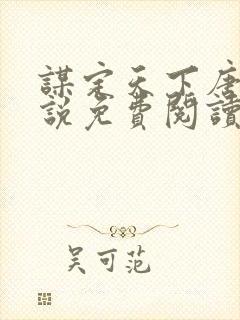 謀定天下唐
說免費閱讀
吳可范